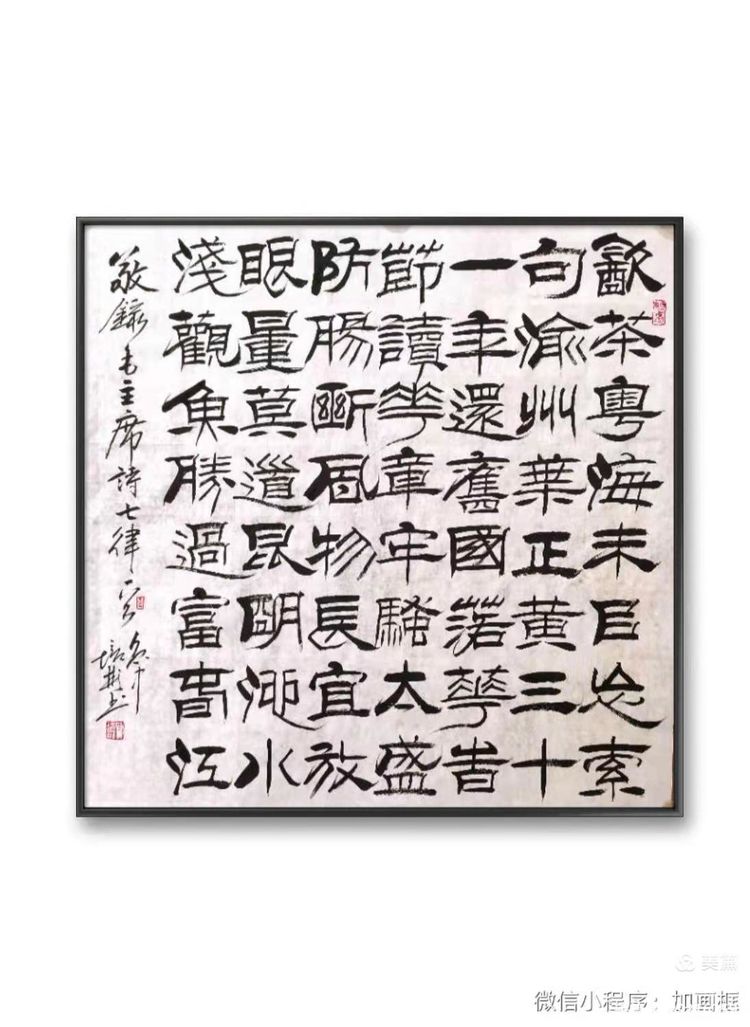 㱃茶粤海未㠯忘索
句渝州葉正黄三十
一年還舊國落華旹
節讀華章牢騷太盛
防腸斷風物長宜放
眼量莫道昆明池水
淺觀魚勝過富旾江
敬錄毛主席詩七律一首
美篇
微信小程序：加画框